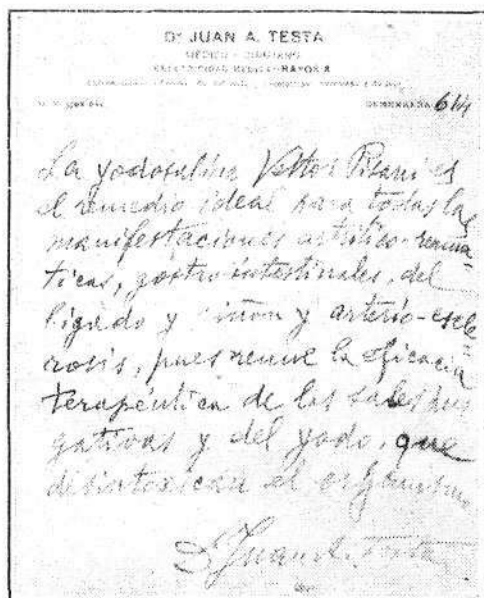 Dr JUAN A. TESTA
MÉDICO - CIRUJANO
ELECTRICIDAD MÉDICA - RAYOS X
La yodosalina Vettor Pisani es
el remedio ideal para todas las
manifestaciones artrítico-reumá-
ticas, gastro intestinales, del
hígado y riñon y arterio-escle
rosis, pues reune la eficacia
terapéutica de las sales pur
gativas y del yodo, que
desintoxican el organismo.
Dr Juan A. Testa